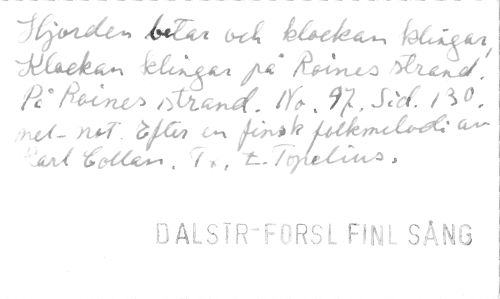 Hjorden betar och klockan klingar,
Klockan klingar på Roines strand.
På Roines strand. No. 97. Sid. 130.
mel-not. Efter en finsk folkmelodi av
Karl Collan. Tx. Z. Topelius.
DALSTR-FORSL FINL SÅNG